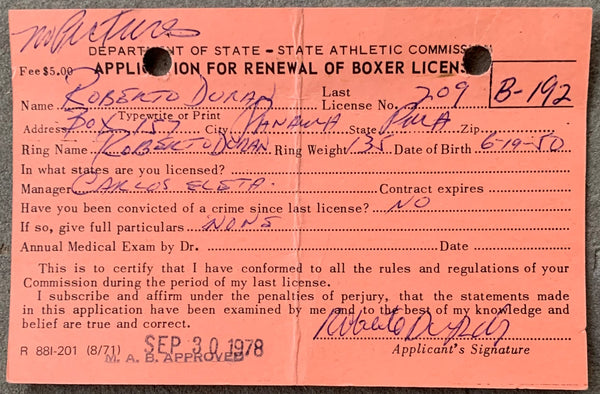 no Picture
DEPARTMENT OF STATE — STATE ATHLETIC COMMISSION
Fee $5.00 APPLICATION FOR RENEWAL OF BOXER LICENSE
Name ROBERTO DURAN Last License No. 209 B-192
Typewrite or Print
Address BOX 157 City PANAMA State Zip
Ring Name ROBERTO DURAN Ring Weight 135 Date of Birth 6-19-50
In what states are you licensed?
Manager CARLOS ELETA. Contract expires
Have you been convicted of a crime since last license? NO
If so, give full particulars NONE
Annual Medical Exam by Dr. Date
This is to certify that I have conformed to all the rules and regulations of your
Commission during the period of my last license.
I subscribe and affirm under the penalties of perjury, that the statements made
in this application have been examined by me and to the best of my knowledge and
belief are true and correct.
Roberto Duran
R 881-201 (8/71) SEP 30 1978 Applicant's Signature
M. A. B. APPROVED